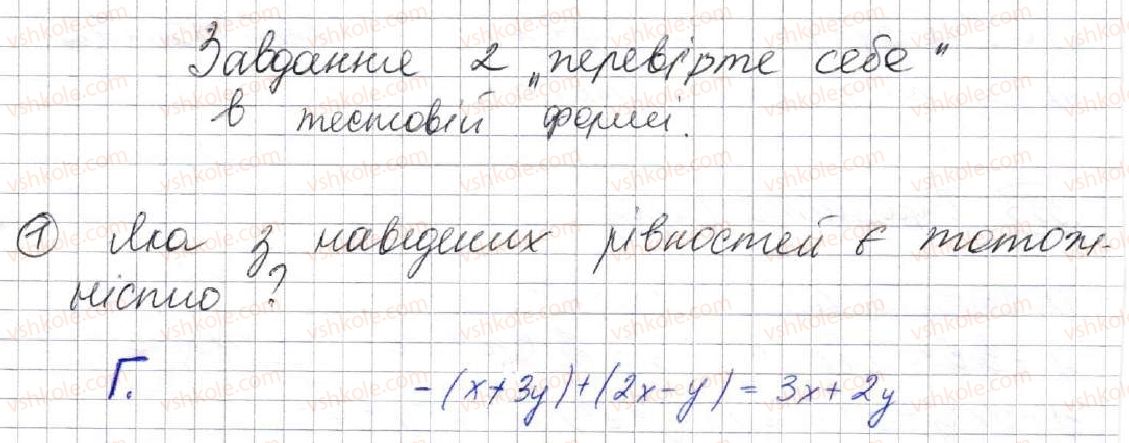 Завдання 2 „перевірте себе"
в тестовій формі.
① Яка з наведених рівностей є тотож-
ністю ?
Г. - (x + 3y) + (2x - y) = 3x + 2y